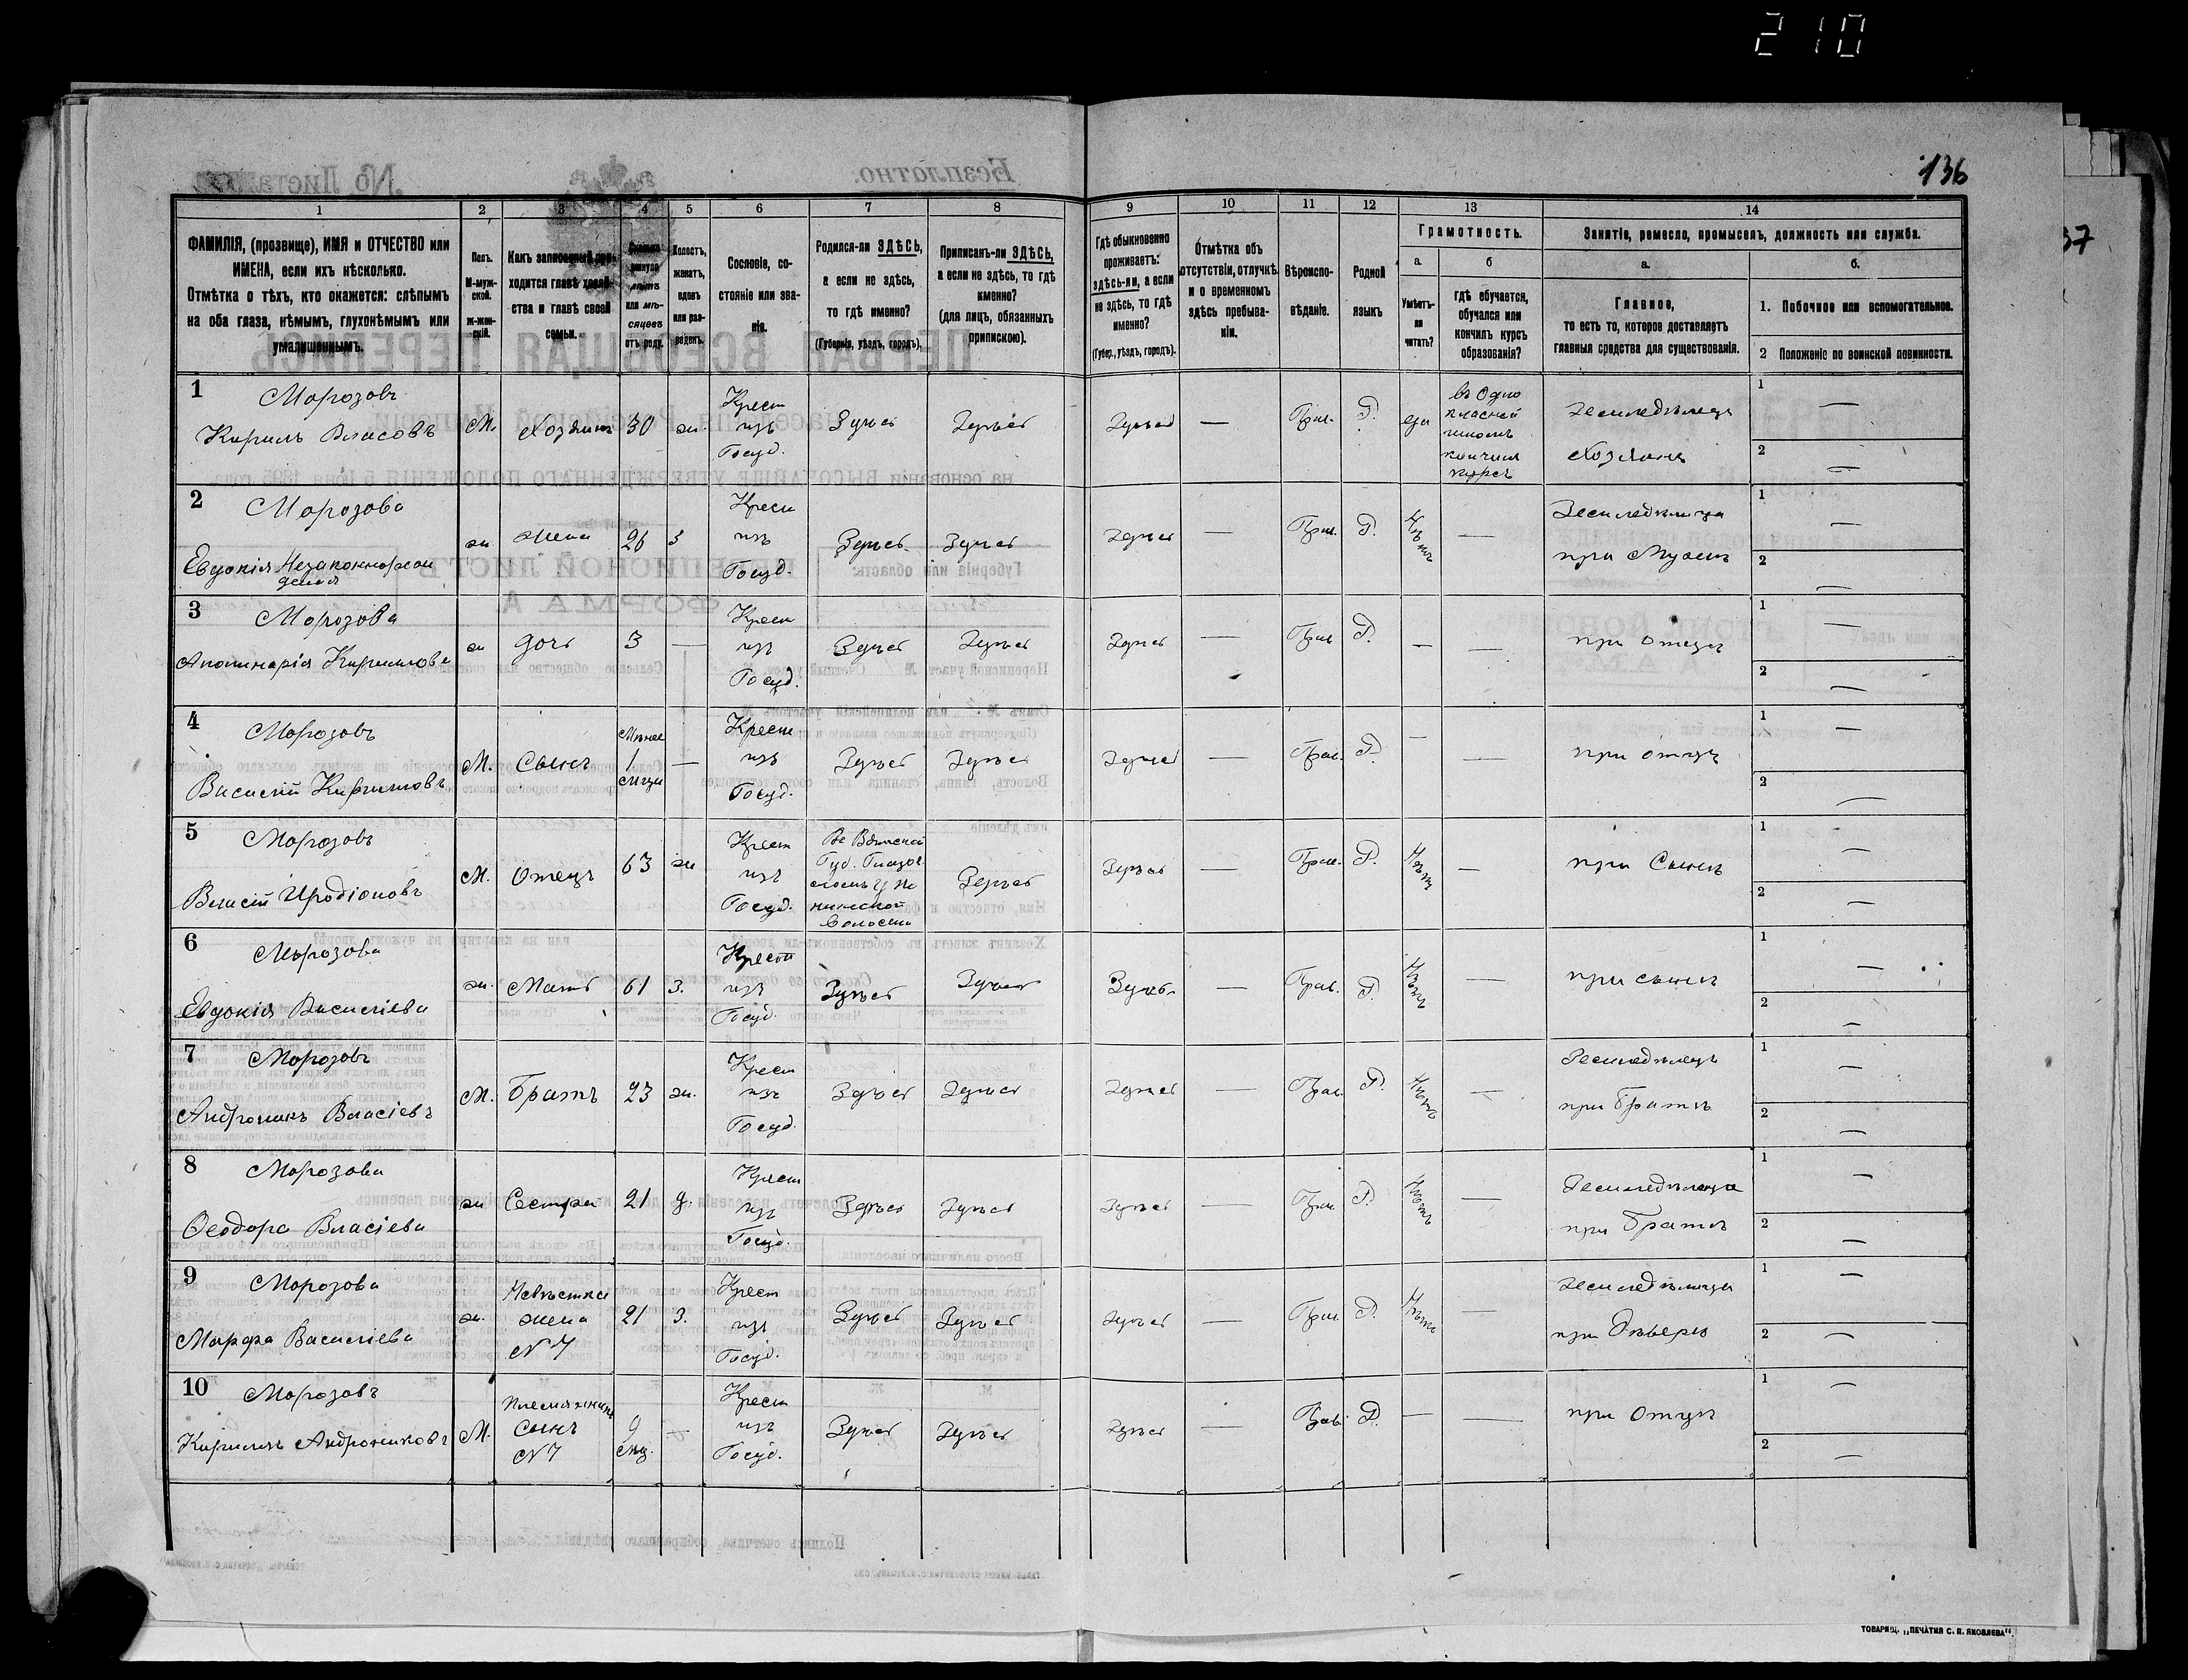 210
136
37
1 2 3 4 5 6 7 8 9 10 11 12 13 14
ФАМИЛІЯ, (прозвище), ИМЯ и ОТЧЕСТВО или
ИМЕНА, если ихъ нѣсколько.
Отмѣтка о тѣхъ, кто окажется: слѣпымъ
на оба глаза, нѣмымъ, глухонѣмымъ или
умалишеннымъ.
Полъ.
М-муж-
ской.
ж-жен-
скій.
Какъ записанный при-
ходится главѣ хозяй-
ства и главѣ своей
семьи.
Сколько
минуло
лѣтъ
или мѣ-
сяцевъ
отъ роду.
Холостъ,
женатъ,
вдовъ
или раз-
веденъ.
Сословіе, со-
стояніе или зва-
ніе.
Родился-ли ЗДѢСЬ,
а если не здѣсь,
то гдѣ именно?
(Губернія, уѣздъ, городъ).
Приписанъ-ли ЗДѢСЬ,
а если не здѣсь, то гдѣ
именно?
(для лицъ, обязанныхъ
припискою).
Гдѣ обыкновенно
проживаетъ:
здѣсь-ли, а если
не здѣсь, то гдѣ
именно?
(Губер., уѣздъ, городъ).
Отмѣтка объ
отсутствіи, отлучкѣ
и о временномъ
здѣсь пребыва-
ніи.
Вѣроиспо-
вѣданіе.
Родной
языкъ
Грамотность.
а.
Умѣетъ-
ли
читать?
б
гдѣ обучается,
обучался или
кончилъ курсъ
образованія?
Занятіе, ремесло, промыселъ, должность или служба.
а.
Главное,
то есть то, которое доставляетъ
главныя средства для существованія.
б.
1. Побочное или вспомогательное.
2 Положеніе по воинской повинности.
1 Морозовъ
Кирилъ Власовъ
М. Хозяинъ 30 ж.
Крест
изъ
Госуд.
Здѣсь Здѣсь Здѣсь — Прав. Р. да
въ Одно
класной
школѣ
кончилъ
курсъ
Земледѣлецъ
Хозяинъ
1 —
2 —
2 Морозова
Евдокія Незаконнорож
денная
ж. жена 26 З
Крест
изъ
Госуд.
Здѣсь Здѣсь Здѣсь — Прав. Р. Нѣтъ —
Земледѣлица
при Мужѣ
1 —
2 —
3 Морозова
Аполинарія Кирилова
ж дочь 3 —
Крест
изъ
Госуд.
Здѣсь Здѣсь Здѣсь — Прав Р. — —
при отцѣ
1 —
2 —
4 Морозовъ
Василій Кириловъ
М. Сынъ
Менѣе
1
мѣсяц
—
Крест
изъ
Госуд.
Здѣсь Здѣсь Здѣсь — Прав. Р. — —
при отцѣ
1 —
2 —
5 Морозовъ
Власій Иродіоновъ
М. Отецъ 63 ж
Крест
изъ
Госуд.
Въ Вятской
Губ. Глазов
волости
Здѣсь Здѣсь — Прав. Р. Нѣтъ —
при Сынѣ
1 —
2 —
6 Морозова
Евдокія Василіева
ж. Мать 61 З.
Крест
изъ
Госуд.
Здѣсь Здѣсь Здѣсь — Прав. Р. Нѣтъ —
при сынѣ
1 —
2 —
7 Морозовъ
Андроникъ Власіевъ
М. Братъ 23 ж.
Крест
изъ
Госуд.
Здѣсь Здѣсь Здѣсь — Прав. Р. Нѣтъ —
Земледѣлецъ
при Братѣ
1 —
2 —
8 Морозова
Ѳеодора Власіева
ж Сестра 21 д.
Крест
изъ
Госуд.
Здѣсь Здѣсь Здѣсь — Прав Р. Нѣтъ —
Земледѣлица
при Братѣ
1 —
2 —
9 Морозова
Марфа Василіева
ж.
Невѣстка
жена
№7
21 З.
Крест
изъ
Госуд.
Здѣсь Здѣсь Здѣсь — Прав Р. Нѣтъ —
Земледѣлица
при Дѣверѣ
1 —
2 —
10 Морозовъ
Кирилъ Андрониковъ
М.
Племянникъ
сынъ
№7
9
мѣс.
—
Крест
изъ
Госуд.
Здѣсь Здѣсь Здѣсь — Прав. Р. — —
при Отцѣ
1 —
2 —
ТОВАРИЩ. „ПЕЧАТНЯ С. П. ЯКОВЛЕВА“.